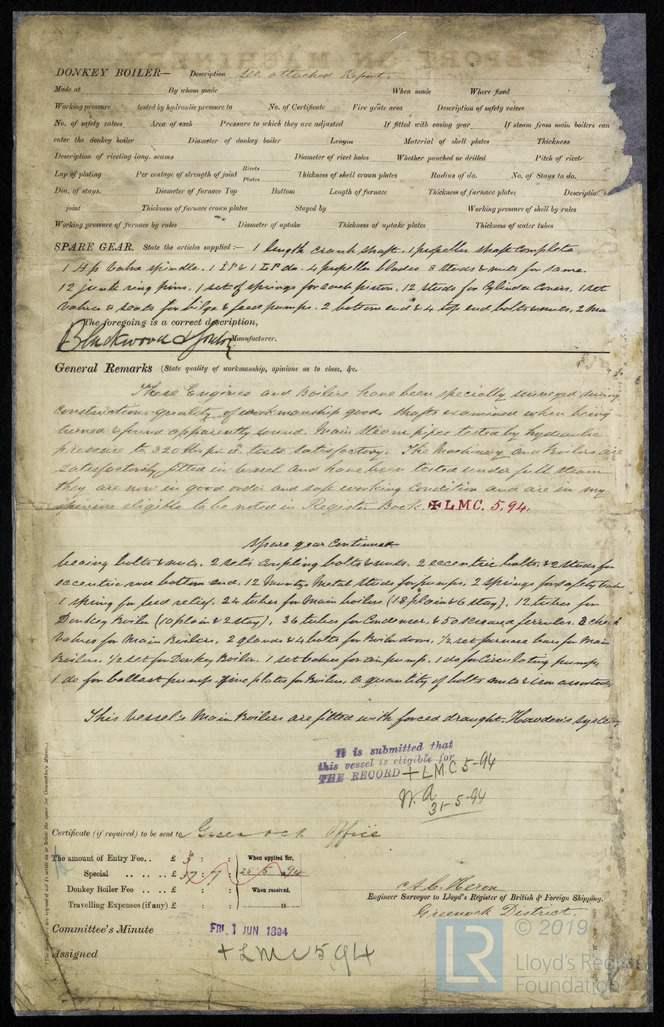 DONKEY BOILER— Description See attached Report.
Made at By whom made When made Where fixed
Working pressure tested by hydraulic pressure to No. of Certificate Fire grate area Description of safety valves
No. of safety valves Area of each Pressure to which they are adjusted If fitted with easing gear If steam from main boilers can
enter the donkey boiler Diameter of donkey boiler Length Material of shell plates Thickness
Description of riveting long. seams Diameter of rivet holes Whether punched or drilled Pitch of rivets
Lap of plating Per centage of strength of joint Rivets Plates Thickness of shell crown plates Radius of do. No. of Stays to do.
Dia. of stays. Diameter of furnace Top Bottom Length of furnace Thickness of furnace plates Descriptio
joint Thickness of furnace crown plates Stayed by Working pressure of shell by rules
Working pressure of furnace by rules Diameter of uptake Thickness of uptake plates Thickness of water tubes
SPARE GEAR. State the articles supplied:— 1 length crank shaft. 1 propeller shaft complete.
1 H.p. valve spindle. 1 I.P. & 1 L.P. do. 4 propeller blades 8 studs & nuts for same.
12 junk ring pins, 1 set of springs for each piston, 12 studs for Cylinder Covers. 1 set
valves & seats for bilge & feed pumps. 2 bottom end & 4 top end bolts & nuts, 2 Ma
The foregoing is a correct description,
Blackwood & Gordon Manufacturer.
General Remarks (State quality of workmanship, opinions as to class, &c.
These Engines and Boilers have been specially surveyed during
construction quality of workmanship good. Shafts examined when being
turned & found apparently sound. Main steam pipes tested by hydraulic
pressure to 320 lbs per □" tests satisfactory. The Machinery and Boilers are
satisfactorily fitted in vessel and have been tested under full steam
they are now in good order and safe working condition and are in my
opinion eligible to be noted in Register Book. ✠ LMC. 5.94.
Spare gear continued
bearing bolts & nuts. 2 sets coupling bolts & nuts. 2 eccentric bolts. & 2 studs for
eccentric rod bottom end. 12 Muntz Metal studs for pumps, 2 springs for safety valv
1 spring for feed relief. 24 tubes for Main boilers (18 plain & 6 stay), 12 tubes for
Donkey Boiler (10 plain & 2 stay), 36 tubes for Condenser, & 50 screwed ferrules. 2 check
valves for Main Boilers, 2 glands & 4 bolts for Boiler doors, ½ set furnace bars for Main
Boilers, ½ set for Donkey Boiler. 1 set valves for air pump, 1 do for Circulating pump,
1 do for ballast pump. five plates for Boilers, a quantity of bolts nuts & iron assorted
This vessel's Main Boilers are fitted with forced draught. Howden's system
It is submitted that
this vessel is eligible for
THE RECORD + LMC 5-94
W.A
31-5-94
Certificate (if required) to be sent to Greenock Office
The amount of Entry Fee.. £ 3 : : When applied for,
Special .. .. £ 37 : 7 : 25.5.94
Donkey Boiler Fee .. .. £ : : When received,
Travelling Expenses (if any) £ : : 18
A. C. Heron
Engineer Surveyor to Lloyd's Register of British & Foreign Shipping.
Greenock District.
Committee's Minute FRI. 1 JUN 1894
Assigned + LMC 5,94
© 2019
LR
Lloyd's Register
Foundation